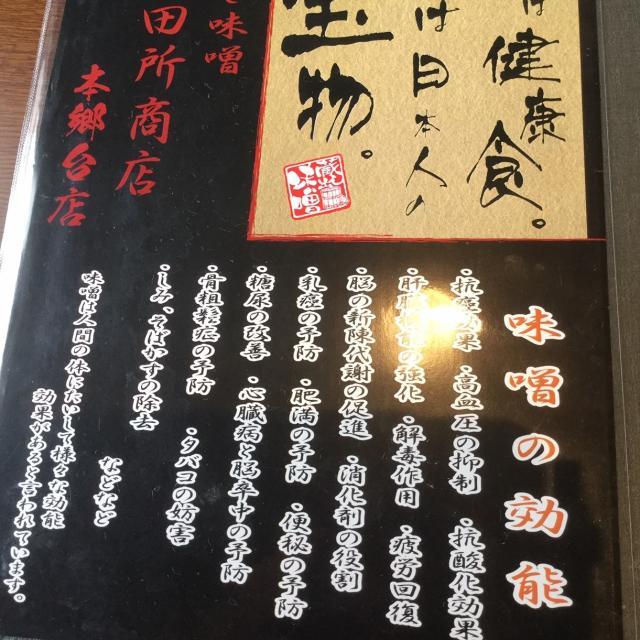 は健康食。
は日本人の
宝物。
蔵出し味噌
味噌
田所商店
本郷台店
味噌の効能
・抗癌効果 ・高血圧の抑制 ・抗酸化効果
・肝臓機能の強化 ・解毒作用 ・疲労回復
・脳の新陳代謝の促進 ・消化剤の役割
・乳癌の予防 ・肥満の予防 ・便秘の予防
・糖尿の改善 ・心臓病と脳卒中の予防
・骨粗鬆症の予防
・しみ、そばかすの除去 ・タバコの妨害
などなど
味噌は人間の体にたいして様々な効能
効果があると言われています。